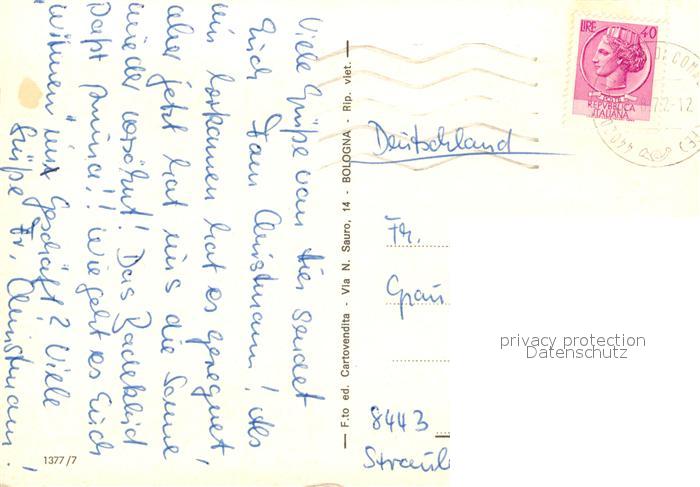 Viele Grüße von hier sendet
Euch Fam Christmann! Als
wir ankamen hat es geregnet,
aber jetzt hat uns die Sonne
wieder versöhnt! Das Badekleid
paßt prima!! Wie geht es Euch
im Geschäft? Viele
Grüße Fr. Christmann!
1377/7
F.to ed. Cartovendita - Via N. Sauro, 14 - BOLOGNA - Rip. viet.
LIRE 40
POSTE
REPVBBLICA
ITALIANA
Deutschland
Fr.
8443
privacy protection
Datenschutz